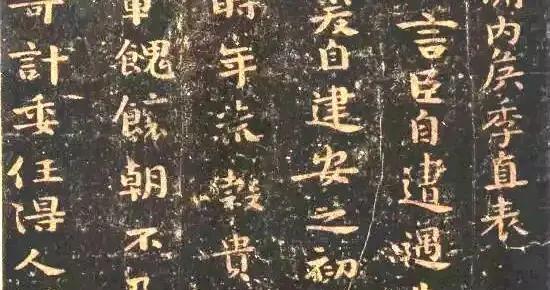 內侯季直表
言臣自遭遇
爰自建安之初
時年荒穀貴
軍餽饟朝不及
奇計委任得人